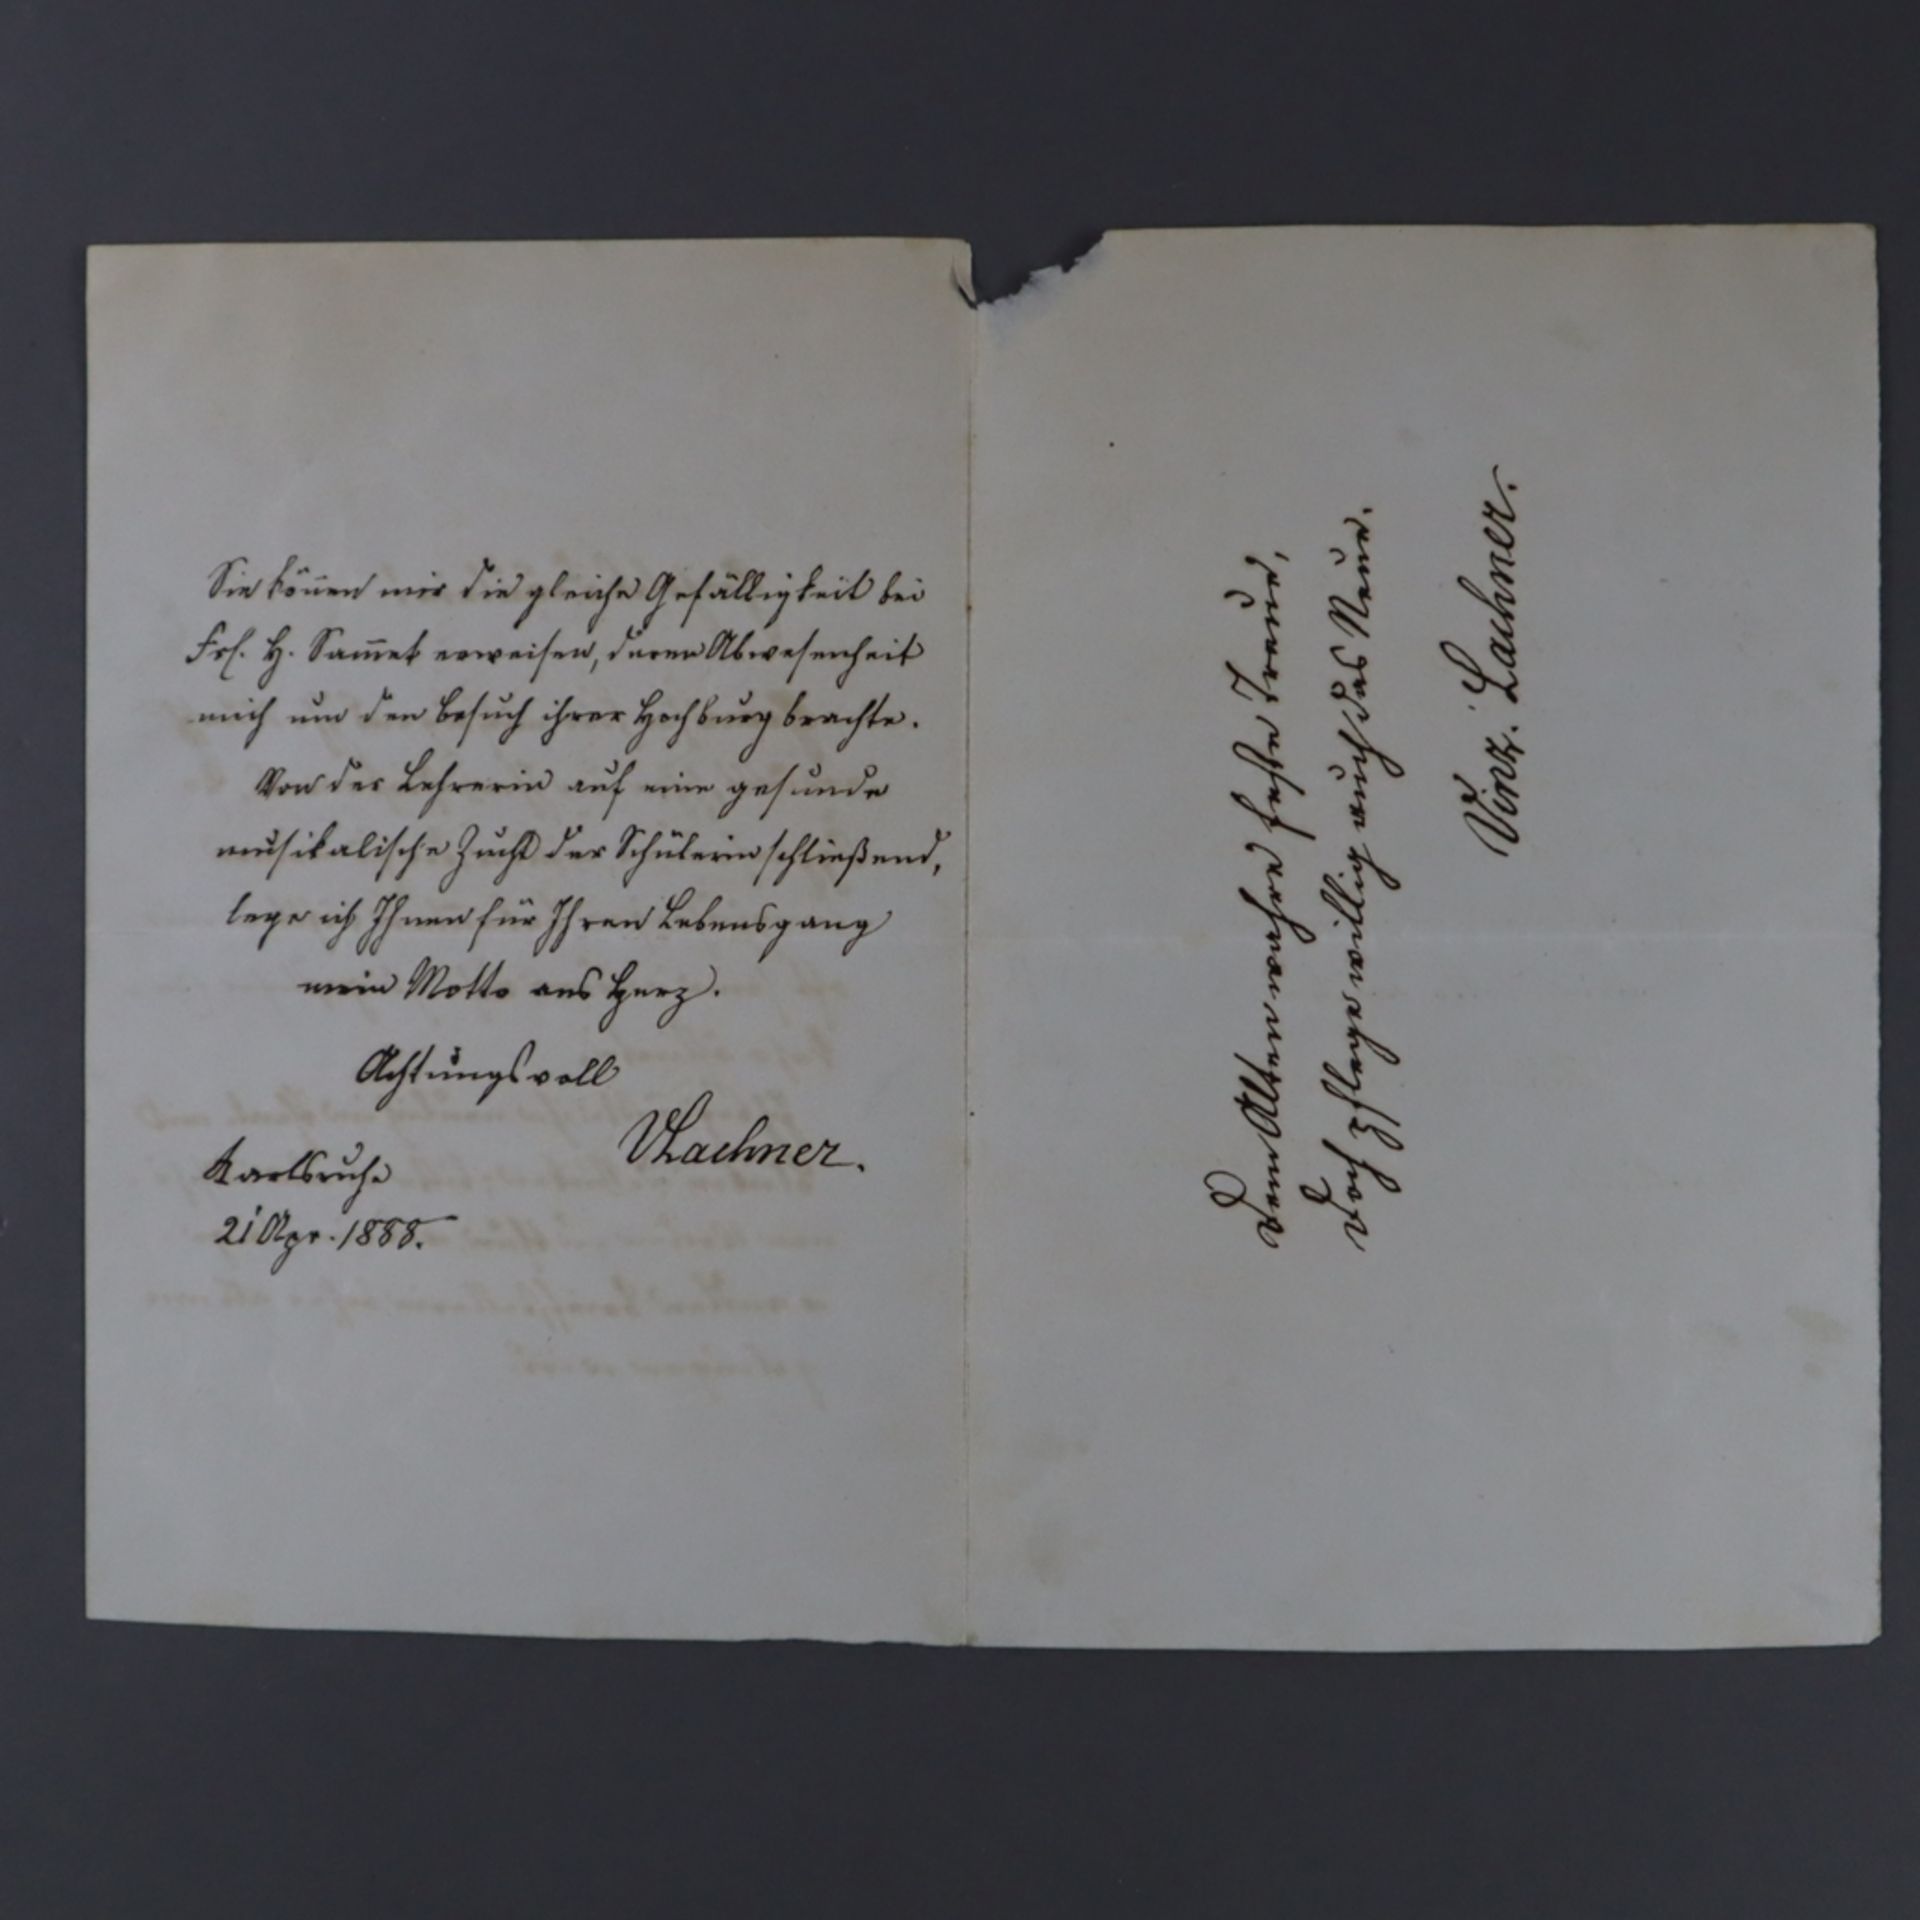 Sie können mir die gleiche Gefälligkeit bei
Frl. H. Sam̅et erweisen, deren Abwesenheit
mich um den Besuch ihrer Hochburg brachte.
Von der Lehrerin auf eine gesunde
musikalische Zucht der Schülerin schließend,
lege ich Ihnen für Ihren Lebensgang
mein Motto ans Herz.
Achtungsvoll
VLachner.
Karlsruhe
21 Apr. 1888.
Dem Alten wahre feste Treue,
Doch pflege willig auch das Neue.
Vinz. Lachner.